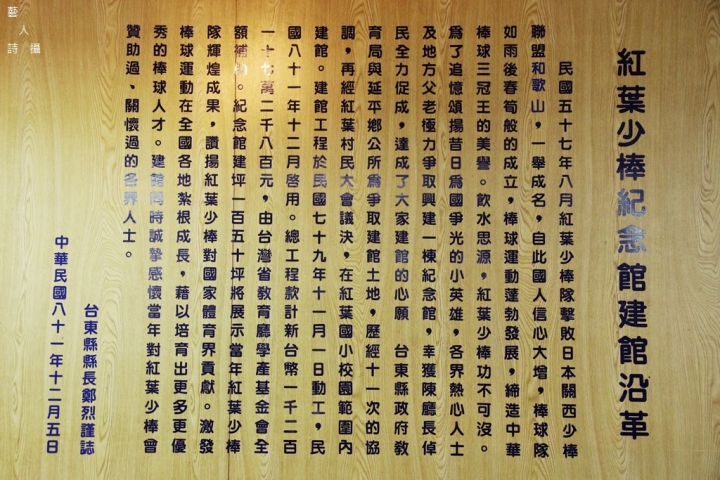 紅葉少棒紀念館建館沿革
民國五十七年八月紅葉少棒隊擊敗日本關西少棒
聯盟和歌山，一舉成名，自此國人信心大增，棒球隊
如雨後春筍般的成立，棒球運動蓬勃發展，締造中華
棒球三冠王的美譽。飲水思源，紅葉少棒功不可沒。
為了追憶頌揚昔日為國爭光的小英雄，各界熱心人士
及地方父老極力爭取興建一棟紀念館，幸獲陳廳長倬
民全力促成，達成了大家建館的心願　台東縣政府教
育局與延平鄉公所為爭取建館土地，歷經十一次的協
調，再經紅葉村民大會議決，在紅葉國小校園範圍內
建館。建館工程於民國七十九年十一月一日動工，民
國八十一年十二月啟用。總工程款計新台幣一千二百
一十七萬二千八百元，由台灣省教育廳學產基金會全
額補助。紀念館建坪一百五十坪將展示當年紅葉少棒
隊輝煌成果，讚揚紅葉少棒對國家體育界貢獻。激發
棒球運動在全國各地紮根成長，藉以培育出更多更優
秀的棒球人才。建館同時誠摯感懷當年對紅葉少棒曾
贊助過、關懷過的各界人士。
台東縣縣長鄭烈謹誌
中華民國八十一年十二月五日
藝人詩攝